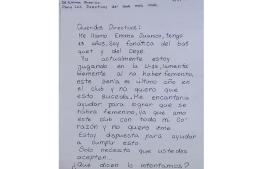 Para los Directivos del club
Queridos Directivos:
Me llamo Emma Juanco, tengo
13 años. Soy fanática del bas
quet y del Depo.
Yo actualmente estoy
jugando en la U-13, lamenta
blemente al no haber femenino,
este sería mi último año en
el club y no quiero que
esto suceda. Me encantaría
ayudar para lograr que se
abra femenino, ya que amo
este club con todo mi co
razón y no quiero irme
Estoy dispuesta para ayudar
a cumplir esto.
Solo necesito que ustedes
acepten...
¿Que dicen lo intentamos?